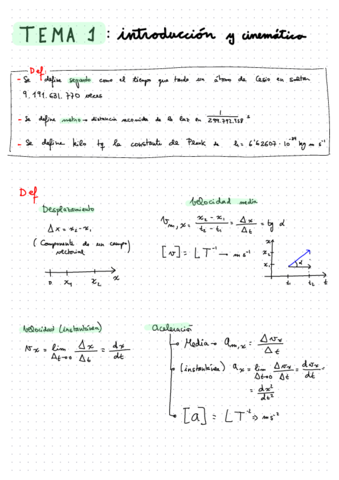 TEMA 1: introducción y cinemática
Def
- Se define segundo como el tiempo que tarda un átomo de Cesio en oscilar
9.191.631.770 veces
- Se define metro → distancia recorrida de la luz en 1/299.792.458 s
- Se define kilo tq la constante de Plank es h = 6'62607·10⁻³⁴ kg m s⁻¹
Def
Desplazamiento
Δx = x₂ - x₁
(Componente de un campo vectorial)
0 x₁ x₂ x
Velocidad media
v_m,x = (x₂ - x₁)/(t₂ - t₁) = Δx/Δt = tg α
[v] = LT⁻¹ → m s⁻¹
x x₂ x₁ α t₁ t₂ t
Velocidad (instantánea)
v_x = lim Δt→0 Δx/Δt = dx/dt
Aceleración
Media → a_m,x = Δv_x/Δt
(instantánea) a_x = lim Δt→0 Δv_x/Δt = dv_x/dt
= dx²/dt²
[a] = LT⁻² ⇒ m s⁻²